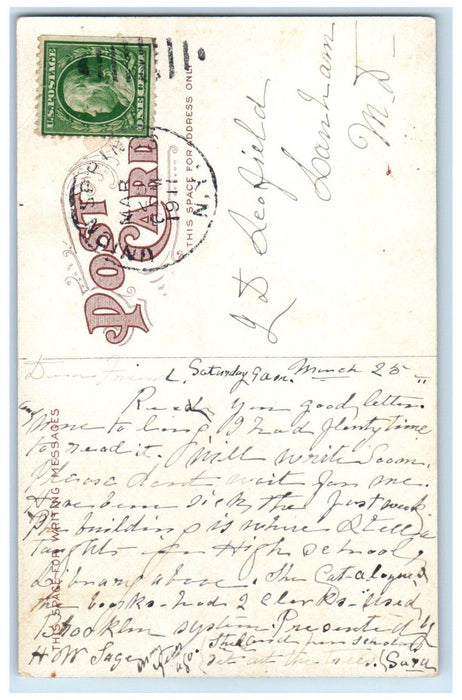 U.S. POSTAGE
ONE CENT
UNION SPRINGS
MAR
1911
N.Y.
POST CARD
THIS SPACE FOR ADDRESS ONLY
Lanham
M.D
THIS SPACE FOR WRITING MESSAGES
Dear Friend L. Saturday 9 am. March 25 "
Recd. your good letter.
none to long I had plenty time
to read it. Will write soon.
Please dont wait for me.
Have been sick the past week
The building is where Stella
taught in High School,
Library above. She Catalogued
the books - had 2 clerks - Used
Brooklin system. Presented by
H W Sage
years ago.
set out the trees. Sara